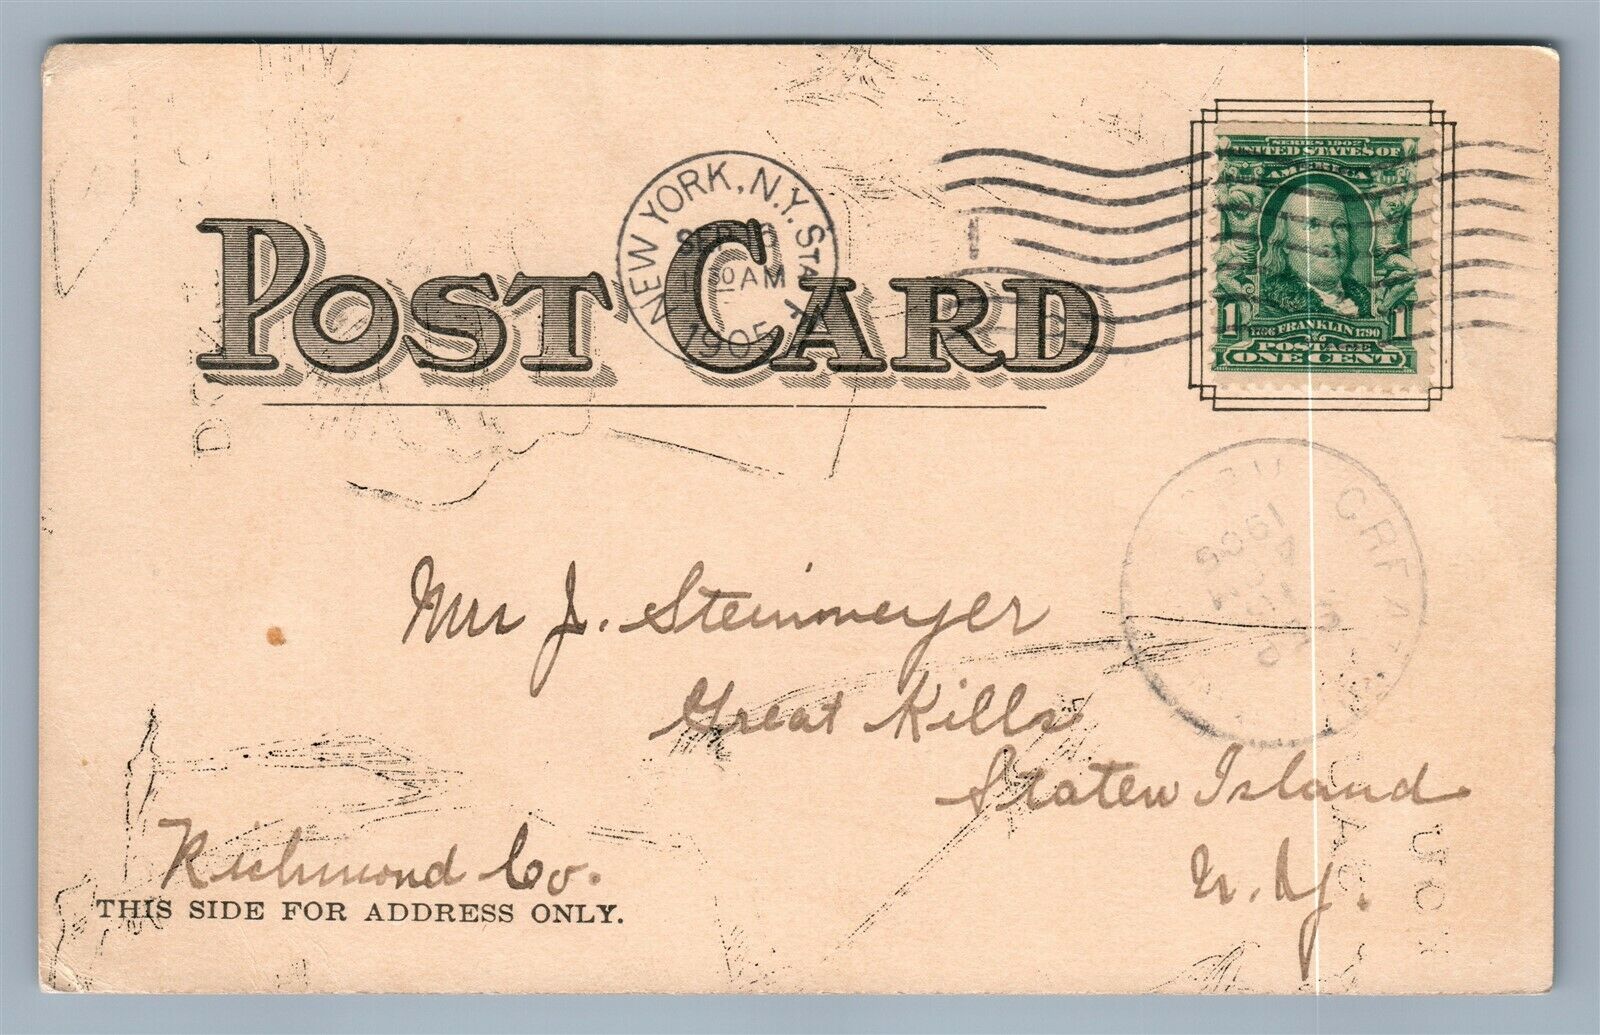 POST CARD
NEW YORK, N.Y. STA
SEP
AM
1905
SERIES 1902
UNITED STATES OF
AMERICA
1 1706 FRANKLIN 1790 1
POSTAGE
ONE CENT
GREAT
Mr J. Steinmeyer
Great Kills
Staten Island
N. Y.
Richmond Co.
THIS SIDE FOR ADDRESS ONLY.